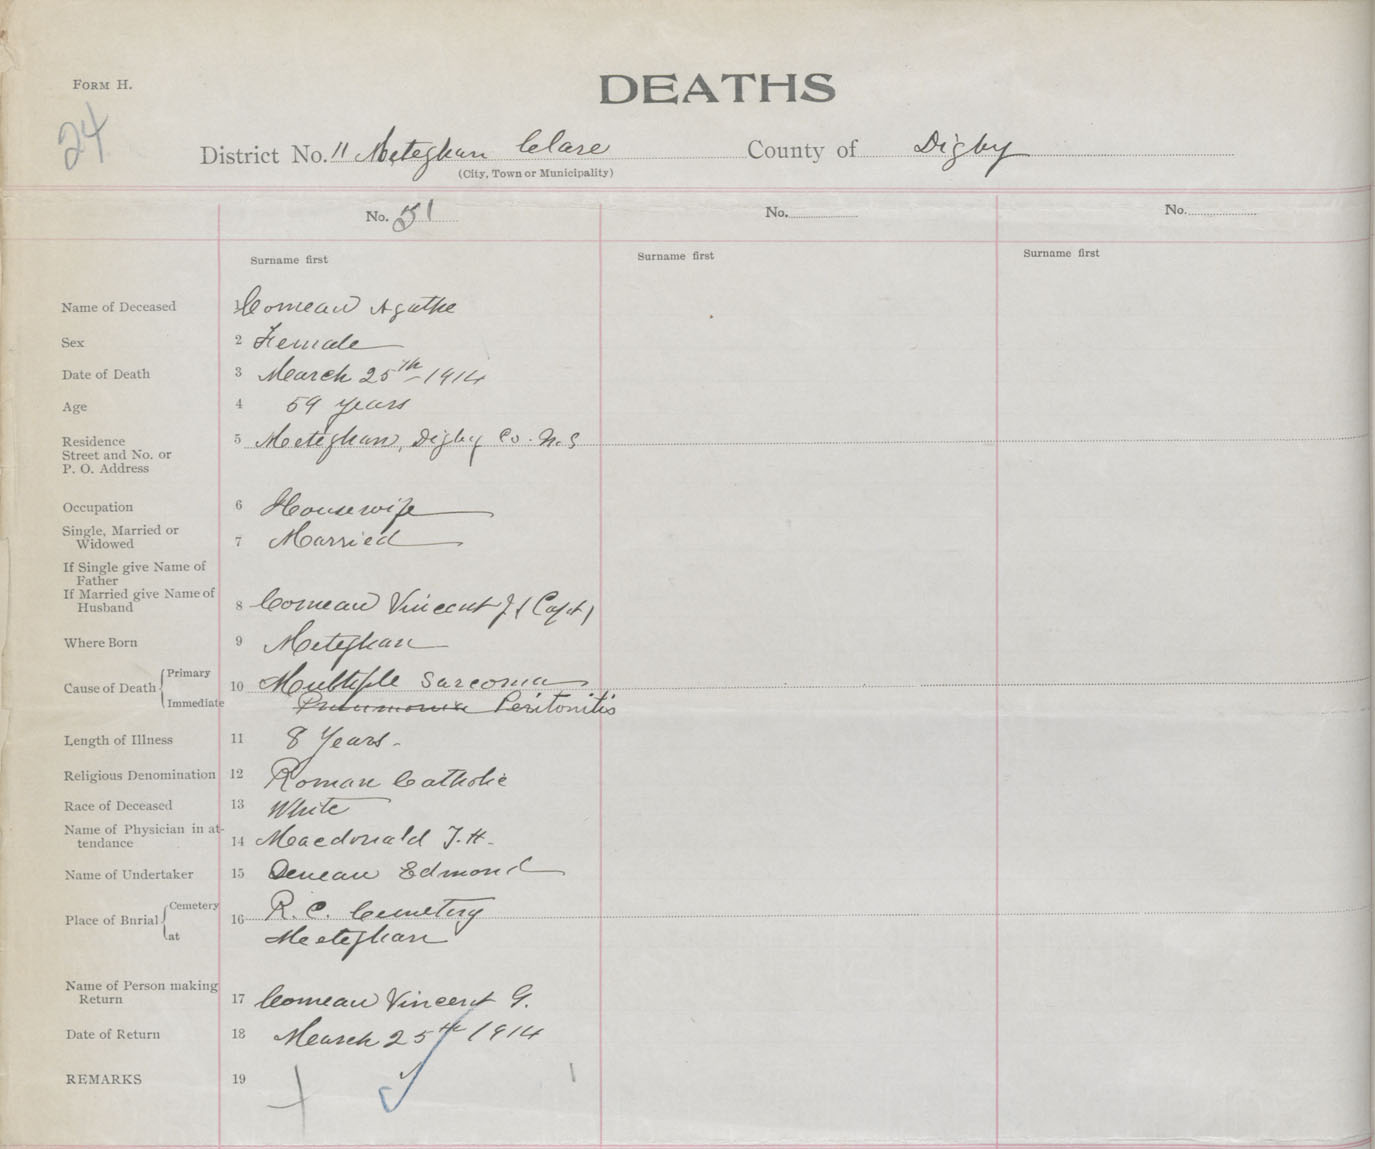 FORM H.
DEATHS
24
District No. 11 Meteghan Clare County of Digby
(City, Town or Municipality)
No. 51 No. No.
Surname first Surname first Surname first
Name of Deceased 1 Comeau Agathe
Sex 2 Female
Date of Death 3 March 25th 1914
Age 4 59 years
Residence 5 Meteghan, Digby Co. N.S
Street and No. or
P. O. Address
Occupation 6 Housewife
Single, Married or
Widowed 7 Married
If Single give Name of
Father
If Married give Name of
Husband 8 Comeau Vincent J (Capt)
Where Born 9 Meteghan
Cause of Death Primary 10 Multiple Sarcoma
Immediate Pneumonia Peritonitis
Length of Illness 11 8 Years
Religious Denomination 12 Roman Catholic
Race of Deceased 13 White
Name of Physician in at-
tendance 14 Macdonald J.H.
Name of Undertaker 15 Deneau Edmond
Place of Burial Cemetery 16 R.C. Cemetery
at Meteghan
Name of Person making
Return 17 Comeau Vincent G.
Date of Return 18 March 25th 1914
REMARKS 19